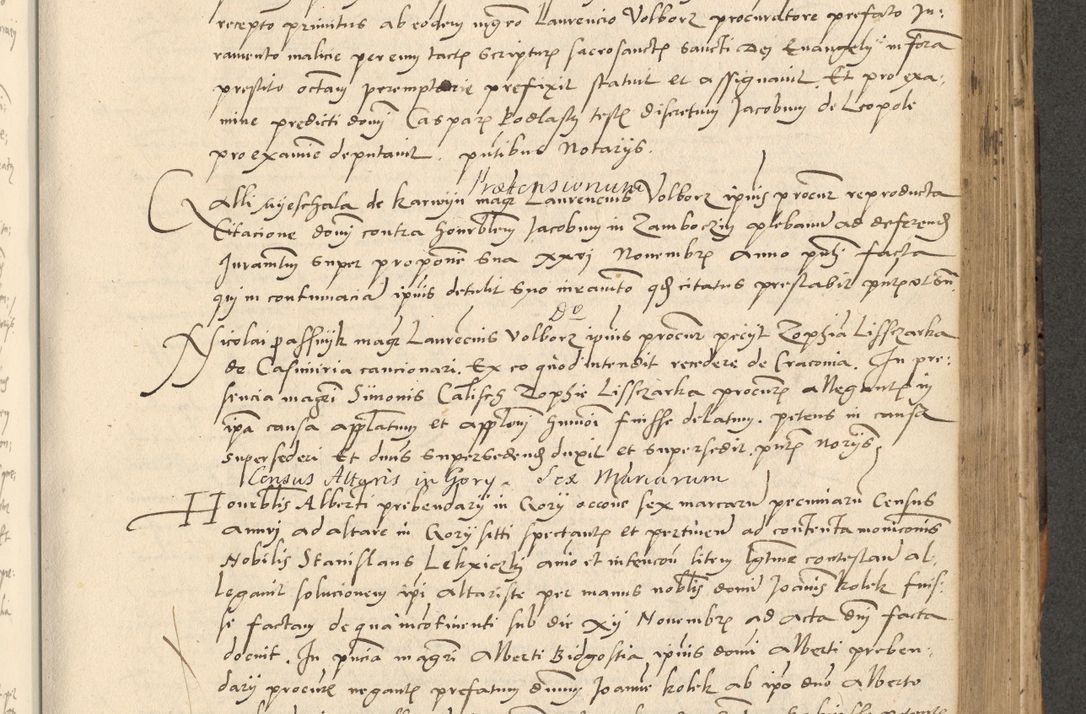 recepto primitus ab eodem mgro Laurencio Volborz procuratore prefato Ju:
ramento malicie per eum tactis scripturis sacrosanctis sancti Dej Euangelij in forma
prestito octam peremptorie prefixit statuit et assignauit. Et pro exa:
mine predicti domj Casparis Kodlasy testis discretum Jacobum de Leopole
pro examine deputauit. putibus Notarijs.
Prætensionum
Galli Wyeschala de Karwyn magr Laurencius Volborz ipius procur reproducta
Citacione domj contra honrblem Jacobum in Zamboczin plebanum ad deferend
Juramtum super propone sua xxvj Nouembrs anno pntj facta
qui in contumacia ipius detulit suo iuramto qd citatus prestabit
do
Nicolai passnyk magr Laurecius Volborz ipius procur pecyt Zophia Lissczarka
de Casimiria caucionari. Ex eo quod intendit recedere de Cracouia. In pre:
sencia magri Simonis Calisch Zophie Lissczarka procuris allegantis in
ipa causa applatum et applom humoi fuisse delatum. petens in causa
supersederi et dnus supersedend duxit et supersedit. putis norijs
Census Altaris in Gory. sex Marcarum
Honrblis Alberti prebendarij in Gory occone sex marcarum pecuniarum Census
annui ad altare in Gory sitti spectantis et pertinen ad contenta monicionis
Nobilis Stanislaus Lekxiczky anio et intencou litem lgtime contestan al:
legauit solucionem ipi altariste per manus noblis domj Joannis Kolek fuis:
se factam de qua incotinenti sub die xij Nouembrs ad acta dnj facta
docuit. In pncia magri Alberti Bidgostia ipius domi Alberti preben:
darij procuris negantis prefatum dnum Joannem Kolek ab ipo dno Alberto